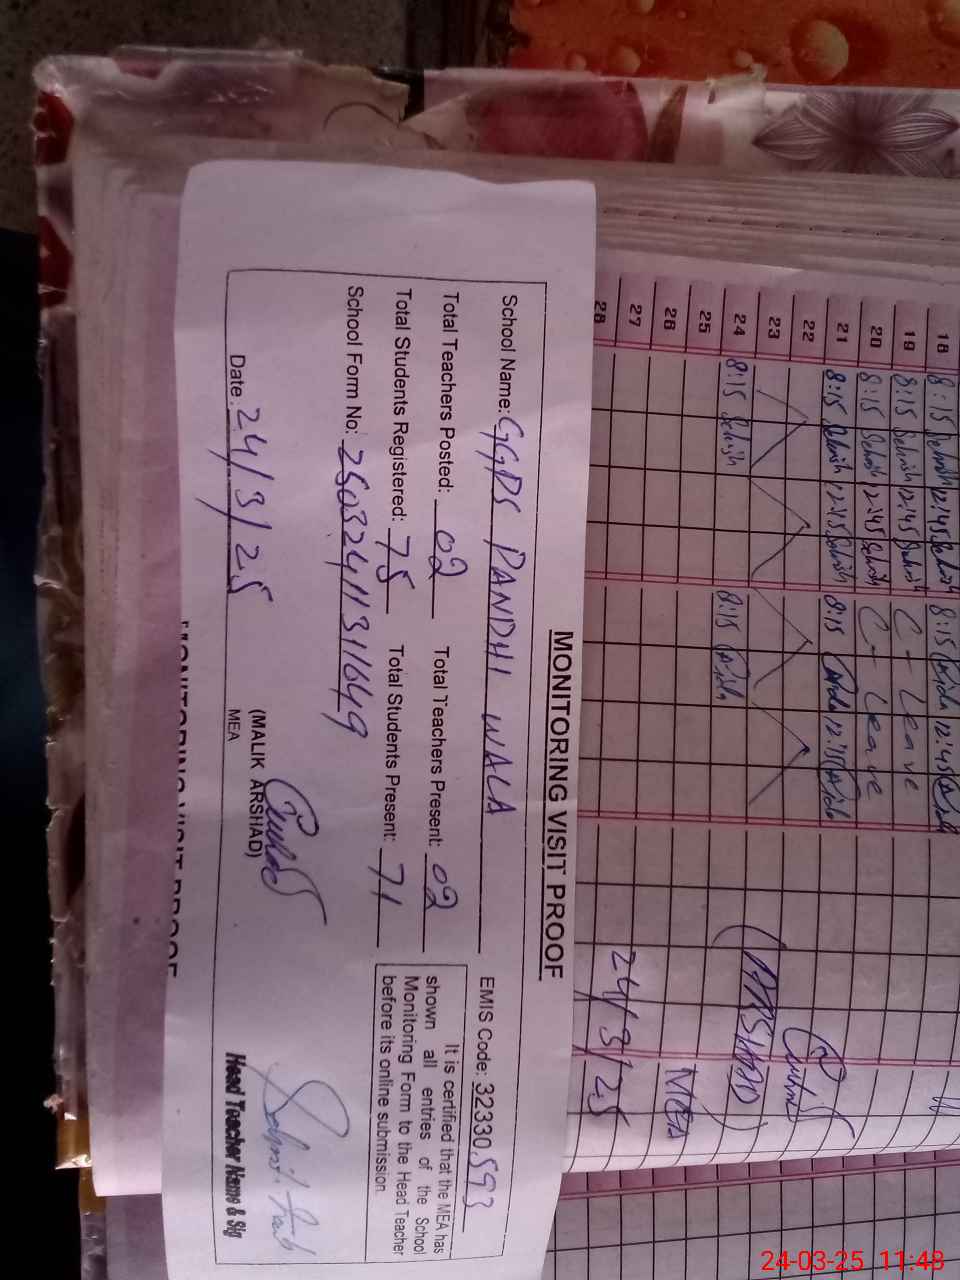 MONITORING VISIT PROOF
School Name: GGPS PANDHI WALA EMIS Code: 32330593
Total Teachers Posted: 02 Total Teachers Present: 02
Total Students Registered: 75 Total Students Present: 71
School Form No: 25032411131649
It is certified that the MEA has
shown all entries of the School
Monitoring Form to the Head Teacher
before its online submission
Date: 24/3/25
(MALIK ARSHAD)
MEA
Head Teacher Name & Sig
MONITORING VISIT PROOF
18 8:15 12:45 8:15 12:45
19 8:15 12:45 C- Leave
20 8:15 12:45 C- Leave
21 8:15 12:45 8:15
22
23
24 8:15 8:15
25
26
27
28
(ARSHAD)
MEA
24/3/25
24-03-25 11:48